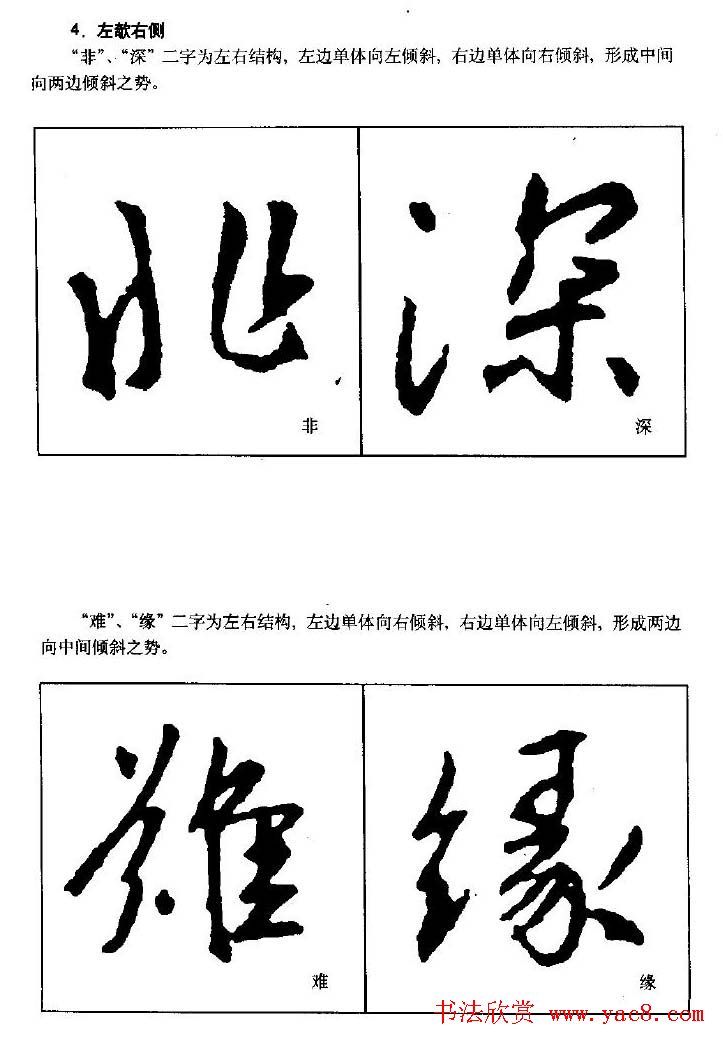 4. 左欹右侧
“非”、“深”二字为左右结构，左边单体向左倾斜，右边单体向右倾斜，形成中间
向两边倾斜之势。
非 深
非 深
“难”、“缘”二字为左右结构，左边单体向右倾斜，右边单体向左倾斜，形成两边
向中间倾斜之势。
難 緣
难 缘
书法欣赏 www.yac8.com